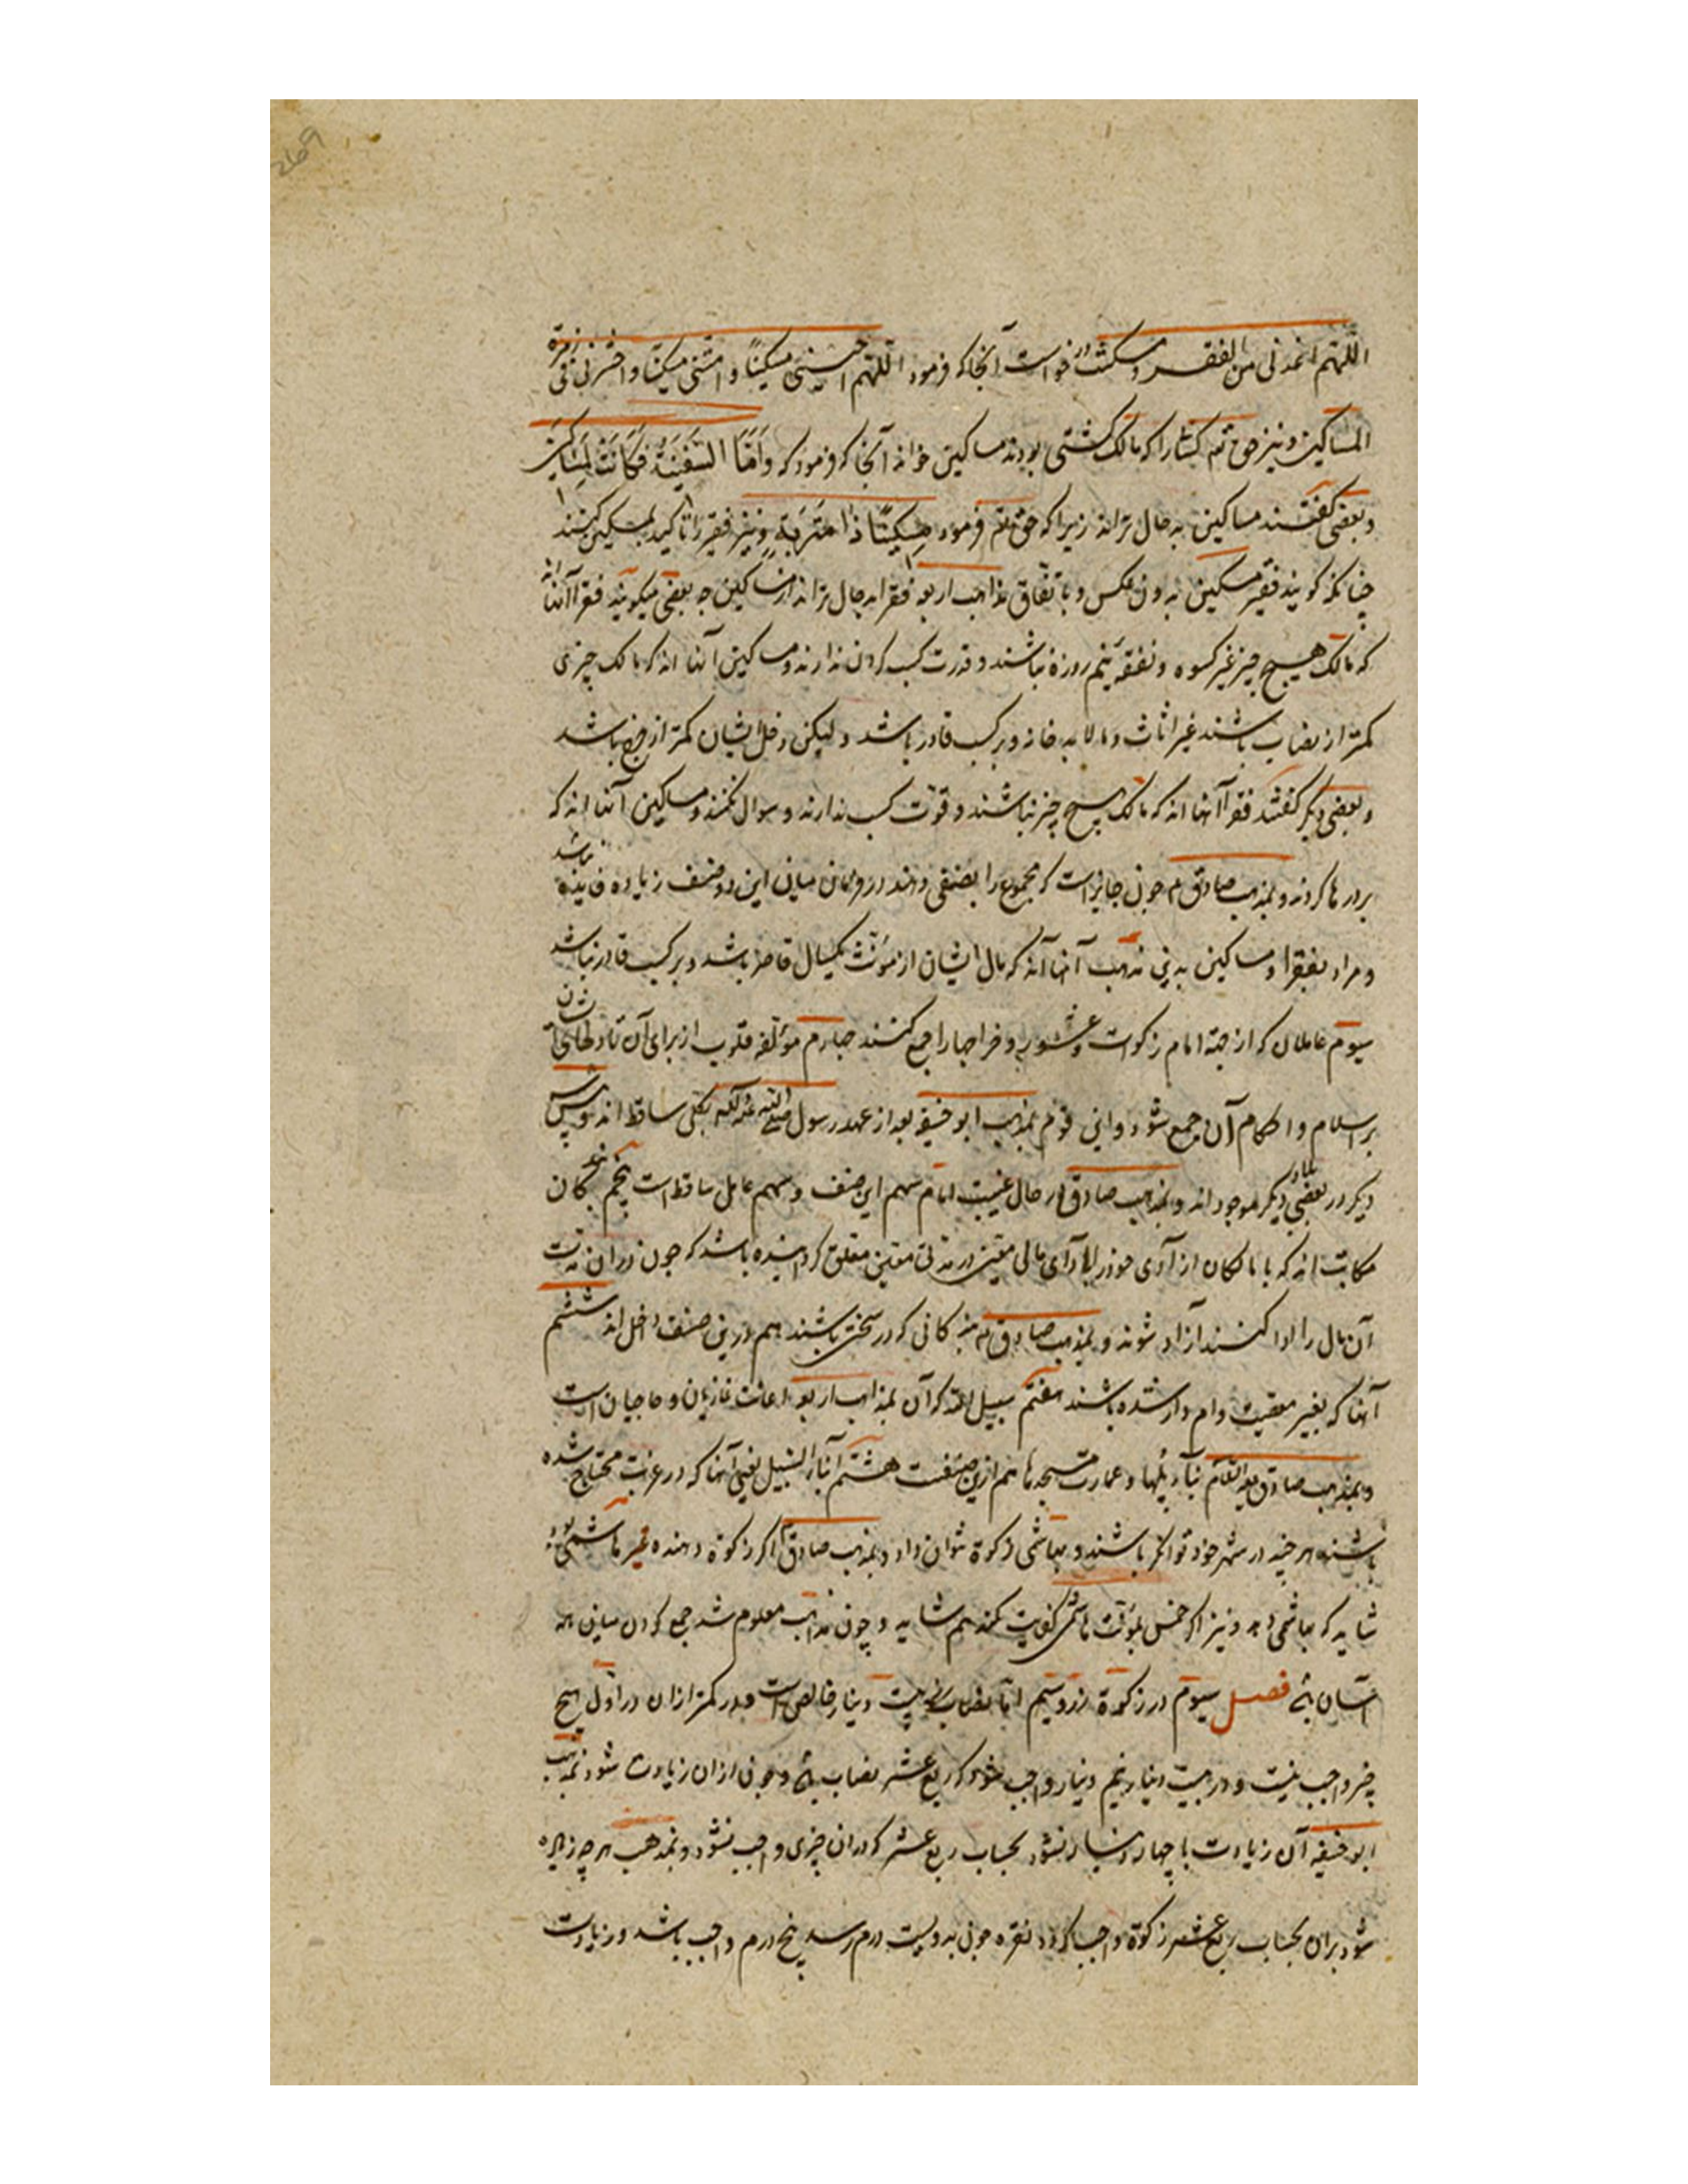 اللهم انی من الفقر و مسکنت خواست آنجا که فرمود اللهم احینی مسکینا و امتنی مسکینا و احشرنی فی زمرة
المساکین و نیز حق تع را که مالک کشتی بودند مساکین خواند آنجا که فرمود که وَاَمَّا السَّفِینَةُ فَکَانَتْ لِمَسَاکِینَ
و بعضی گفتند مساکین بد حال ترند زیرا که حق تع فرمود مِسکِینًا ذَا مَتْرَبَةٍ و نیز فقیر را تاکید بمسکین کنند
چنانکه کویند فقیر مسکین بدون عکس و باتفاق مذاهب اربعه فقرا بد حال ترند از مساکین چه بعضی میکویند فقرا آنها اند
که مالک هیچ چیز غیر کسوه و نفقه نیم روزه نباشند و قدرت کسب کردن ندارند و مساکین آنها اند که مالک چیزی
کمتر از نصاب باشند غیر اثاث و مالابد خانه و بر کسب قادر باشد و لیکن دخل ایشان کمتر از خرج باشد
و بعضی دیکر کفتند فقرا آنها اند که مالک هیچ چیز نباشند و قوت کسب ندارند و سوال نکنند و مساکین آنها اند که
بر درها کردند و بمذهب صادق ع چون جایز است که مجموع را بصنفی دهند در فرق میان این دو صنف زیاده فایده نباشد
و مراد بفقرا و مساکین برین مذهب آنها اند که مال ایشان از مؤنت یکسال قاصر باشد و بر کسب قادر نباشد
سیوم عاملان که از جهة امام زکوات و عشور و خراجها را جمع کنند چهارم مؤلفه قلوب از برای آن تا دلهای ایشان
بر اسلام و احکام آن جمع شود و این قوم بمذهب ابو حنیفه بعد از عهد رسول صلی الله علیه و آله بکلی ساقط اند و پیش
دیکر در بعضی بلاد دیکر موجود اند و بمذهب صادق ع در حال غیبت امام سهم این صنف و سهم عامل ساقط است پنجم بندکان
مکاتب اند که با مالکان از آزادی خود را بر ادای مالی معین در مدتی معین معلق کردانیده باشند که چون در ان مدت
آن مال را ادا کنند آزاد شوند و بمذهب صادق ع بندکانی که در سختی باشند هم درین صنف داخل اند ششم
آنها که بغیر معصیت وام دار شده باشند هفتم سبیل الله که آن بمذاهب اربعه اعانت غازیان و حاجیان است
و بمذهب صادق علیه السلام بناء پلها و عمارت مسجدها هم ازین صنفست هشتم ابناء السبیل یعنی آنها که در غربت محتاج شده
باشند هر چند در شهر خود توانکر باشند و بهاشمی زکوة نتوان داد و بمذهب صادق ع اکر زکوة دهنده غیر هاشمی بود
شاید که بهاشمی دهد و نیز اکر خمس بمؤنت هاشمی کفایت نکند هم شاید و چون مذاهب معلوم شد جمع کردن میان همه
آسان بود فصل سیوم در زکوة زر و سیم اما نصاب زر بیست دینار خالص است و در کمتر ازان در اول هیچ
چیز واجب نیست و در بیست دینار نیم دینار واجب شود که ربع عشر نصاب بود و چون ازان زیادت شود بمذهب
ابو حنیفه آن زیادت تا چهار دینار نشود بحساب ربع عشر که در ان چیزی واجب نشود و بمذهب هر چه زیاده
شود بران بحساب ربع عشر زکوة واجب کردد نقره چون بدویست درم رسد پنج درم واجب باشد و زیادت